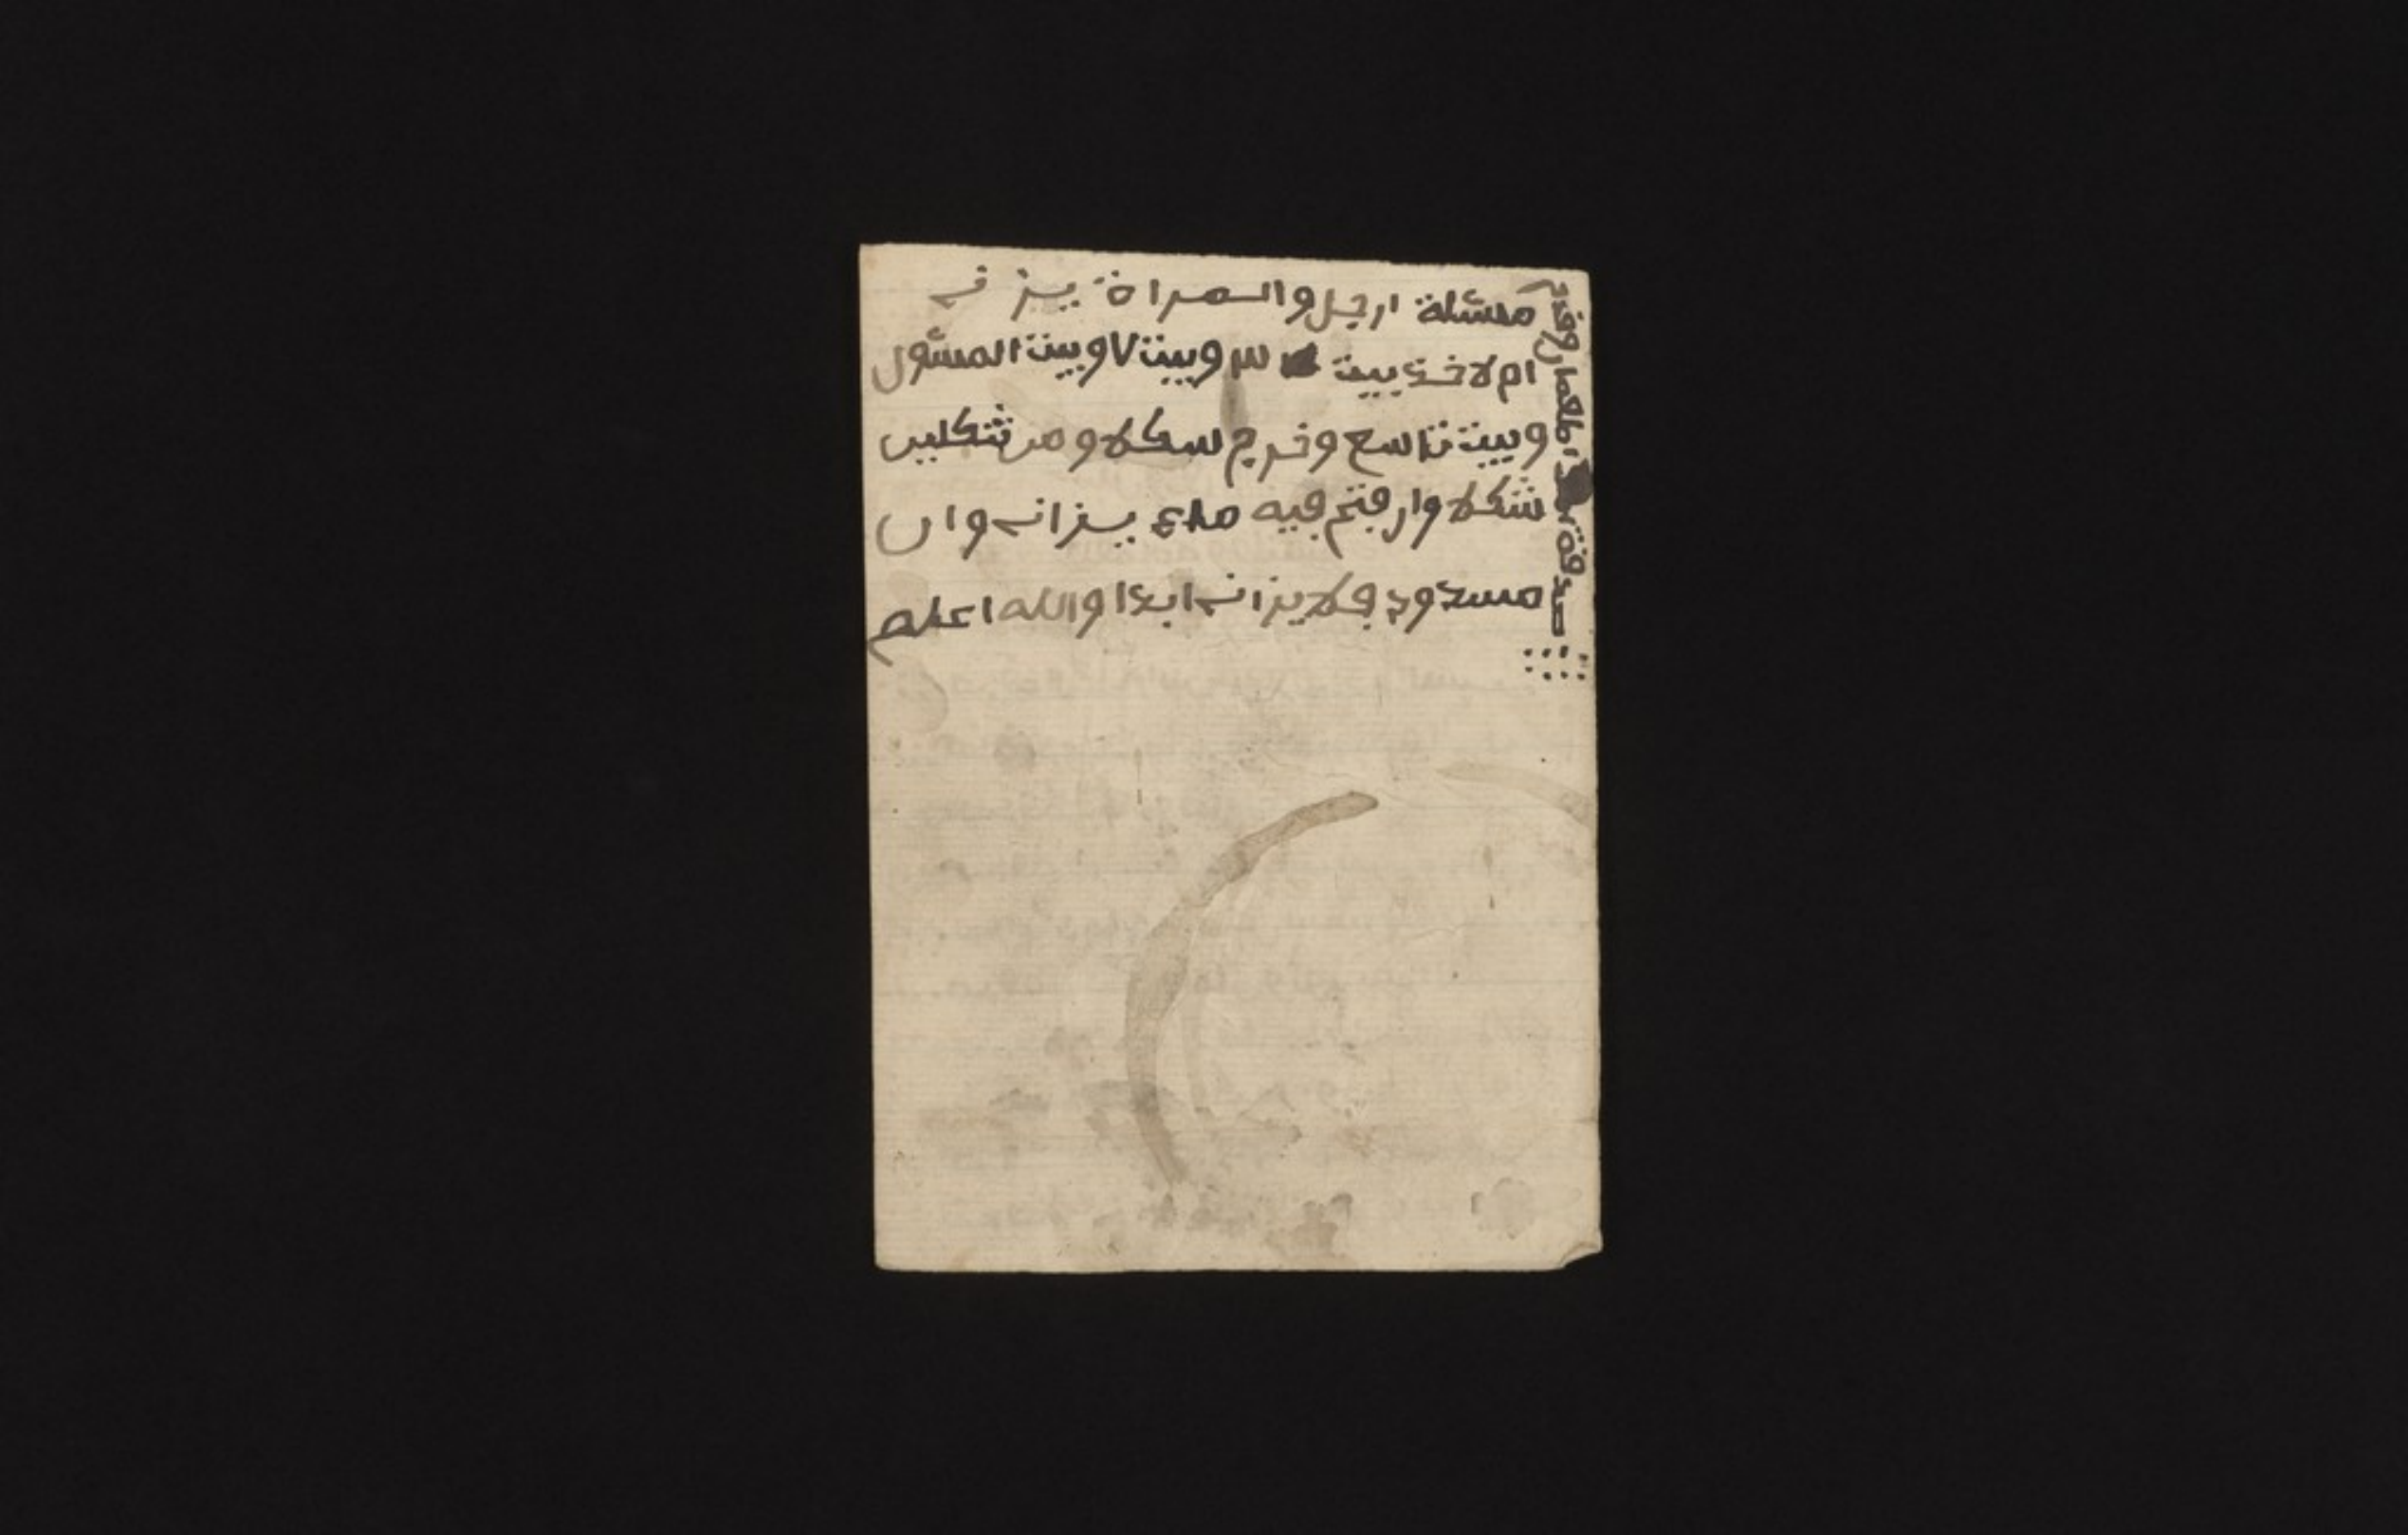 مسئلة ارجل والمراة يزنى
ام لا خذ بيت س وبيت ٧ وبيت المسئول
وبيت تاسع وخرج سكلا ومن شكلين
شكلا وار فتم فيه ماء يزانى وان
مسدود فلا يزانى ابدا والله اعلم
صدقة طعمار